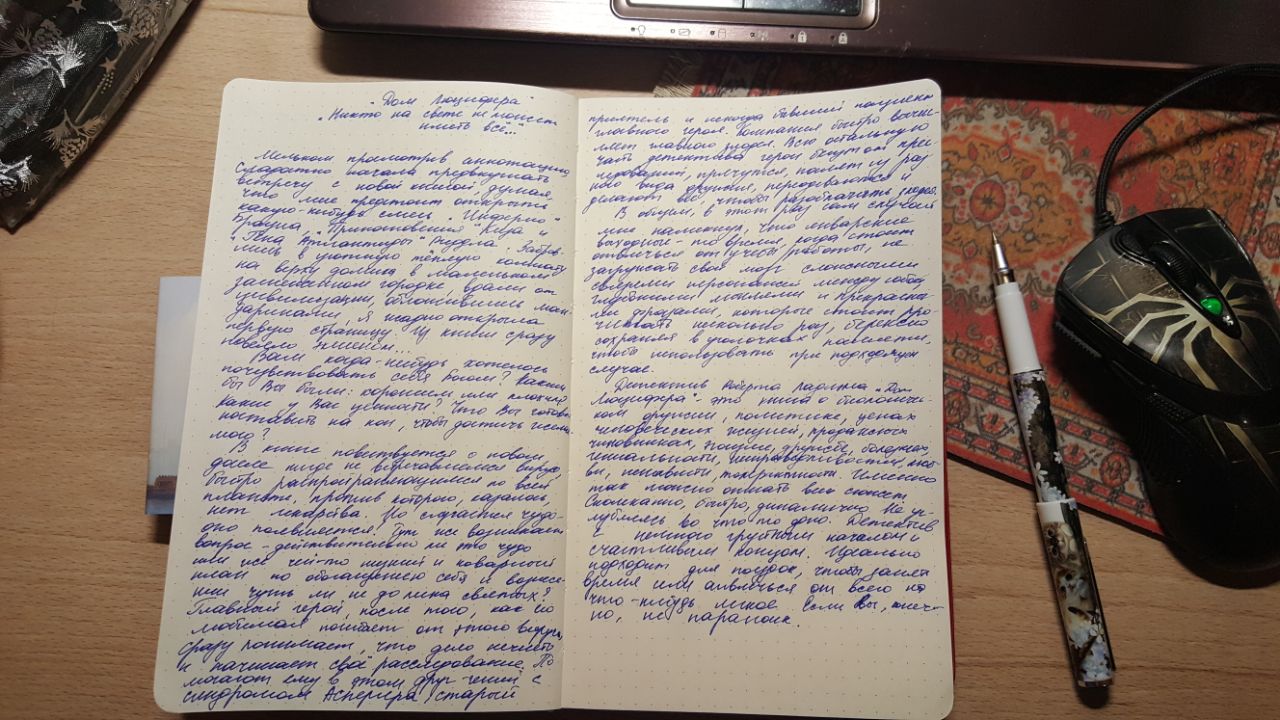 "Дом Люцифера"
"Никто на свете не может
иметь всё..."
Мельком просмотрев аннотацию,
сладостно начала предвкушать
встречу с новой книгой, думая,
что мне предстоит открыть
какую-нибудь смесь "Инферно"
Брауна, "Противостояния" Кинга и
"Гена Атлантиды" Риддла.
лись в уютную тёплую комнату
на верху домика в маленьком
городке, вдали от
цивилизации, обложившись ман
даринами, я жадно открыла
первую страницу. Из книги сразу
повеяло
Вам когда-нибудь хотелось
почувствовать себя Богом? Каким
бы Вы были: хорошим или плохим?
Какие у Вас ценности? Что Вы готовы
поставить на кон, чтобы достичь
мого?
В книге повествуется о новом,
доселе нигде не встречавшемся вирусе,
быстро распространяющимся по всей
планете, против которого, казалось,
нет лекарства. Но случается чудо -
оно появляется. Тут же возникает
вопрос - действительно ли это чудо
или же чей-то хитрый и коварный
план по обогащению себя и возвыше-
нии чуть ли не до лика святых?
Главный герой, после того, как его
любимая погибает от этого вируса,
сразу понимает, что дело нечисто
и начинает своё расследование. По
могают ему в этом друг-гений с
синдромом Аспергера, старый
приятель и некогда бывший пациент
главного героя. Компания быстро вычис-
ляет главного злодея. Всю остальную
часть детектива герои бегут от прес-
ледований, прячутся, палят из раз
ного вида оружия, переодеваются и
делают всё, чтобы разоблачить злодея.
В общем, в этот раз сам случай
мне намекнул, что январские
выходные - то время, когда стоит
отвлечься от учебы/работы, не
загружать свой мозг сложными
связями персонажей между собой,
глубокими мыслями и прекрасны
ми фразами, которые стоит про
читать несколько раз, бережно
сохраняя в уголочках памяти,
чтобы использовать при подходящем
случае.
Детектив Роберта "Дом
Люцифера" - это книга о биологичес-
ком оружии, политике, ценах
человеческих жизней, продажных
чиновниках, дружбе, болезнях,
гениальности, несправедливости, люб-
ви, ненависти, толерантности. Именно
так можно описать весь сюжет.
Скомканно, быстро, динамично. Не уг-
лубляясь во что-то одно. Детектив
с немного грустным началом и
счастливым концом. Идеально
подходит для поездок, чтобы занять
время или отвлечься от всего на
что-нибудь легкое. Если вы, конеч-
но, не параноик.